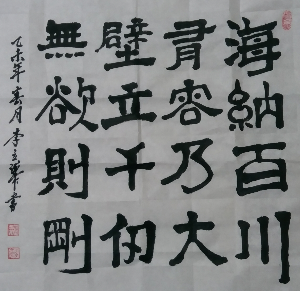 海納百川
有容乃大
壁立千仞
無欲則剛
乙未年春月李立華書